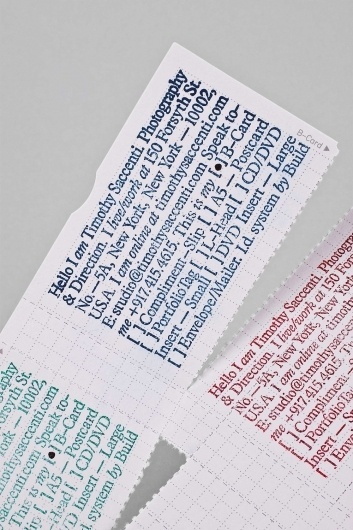 B-Card
Hello I am Timothy Saccenti Photography
& Direction. Live/work at 150 Forsyth St.
No. — 5A, New York, New York — 10002,
U.S.A. I am online at timothysaccenti.com
E: studio@timothysaccenti.com Speak to-
me +917.415.4615. This is my ● B-Card
[ ] Compliment — Slip [ ] A5 — Postcard
[ ] Portfolio Tag [ ] L-Head [ ] CD/DVD
Insert — Small [ ] DVD Insert — Large
[ ] Envelope/Mailer i.d system by Build
Hello I am Timothy Saccenti Photogra
& Direction. Live/work at 150
No. — 5A, New York,
U.S.A. I am online at
E: studio@timothy
me +917.415.4615.
[ ] Complimen
[ ] Portfolio Ta
Insert — S
[ ] Envelo
10002,
saccenti.com
Speak to-
This is my ● B-Card
A5 — Postcard
Head [ ] CD/DVD
Insert — Large
system by Build